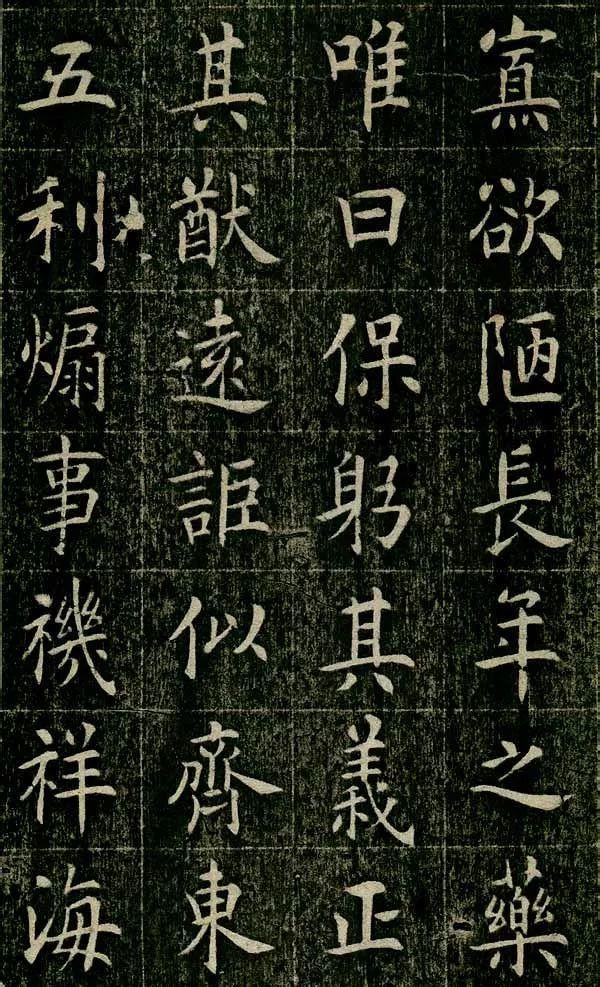 寡欲陋長年之藥
唯曰保躬其義正
其猷遠詎似齊東
五利煽事禨祥海